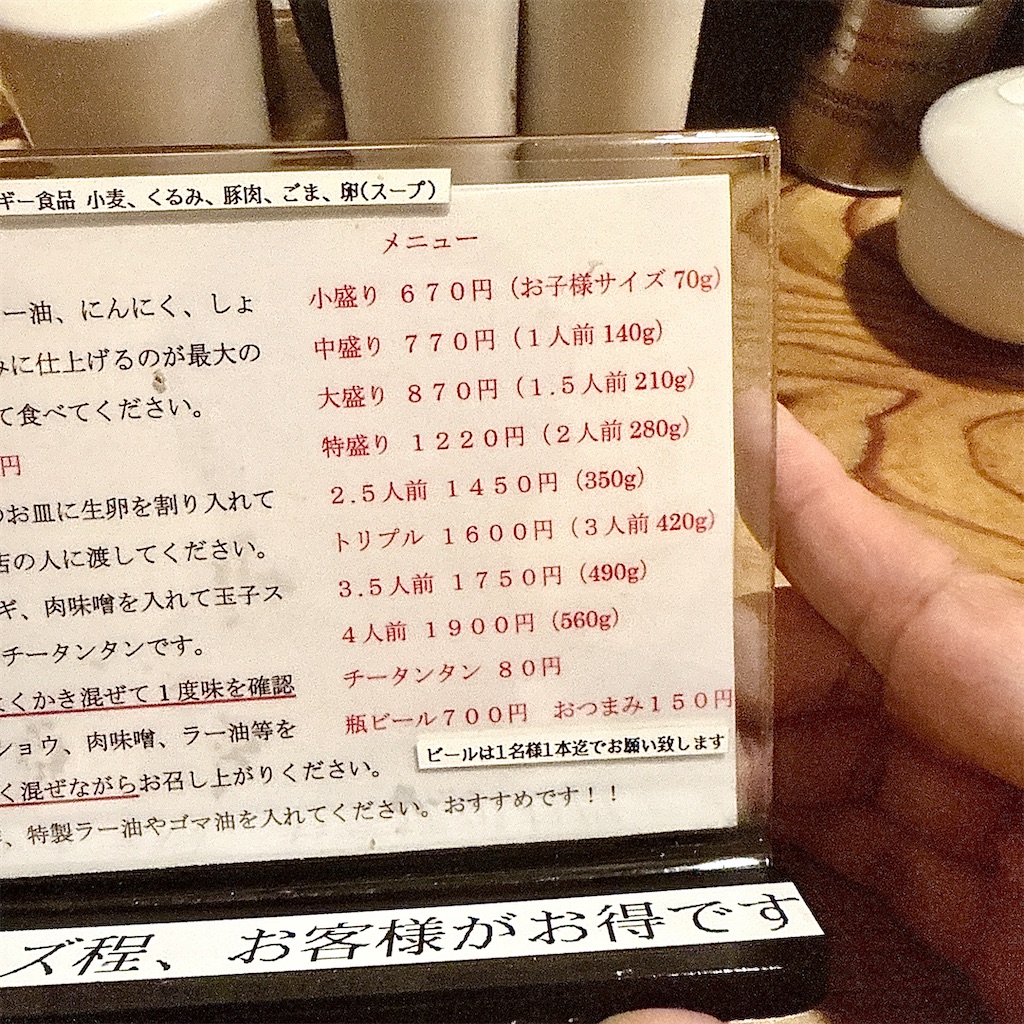 ギー食品 小麦、くるみ、豚肉、ごま、卵(スープ)
ー油、にんにく、しょ
みに仕上げるのが最大の
て食べてください。
円
のお皿に生卵を割り入れて
店の人に渡してください。
ギ、肉味噌を入れて玉子ス
チータンタンです。
よくかき混ぜて1度味を確認
ショウ、肉味噌、ラー油等を
く混ぜながらお召し上がりください。
、特製ラー油やゴマ油を入れてください。おすすめです！！
メニュー
小盛り ６７０円（お子様サイズ 70g）
中盛り ７７０円（１人前 140g）
大盛り ８７０円（１.５人前 210g）
特盛り １２２０円（２人前 280g）
２.５人前 １４５０円（350g）
トリプル １６００円（３人前 420g）
３.５人前 １７５０円（490g）
４人前 １９００円（560g）
チータンタン ８０円
瓶ビール７００円 おつまみ１５０円
ビールは1名様1本迄でお願い致します
ズ程、お客様がお得です